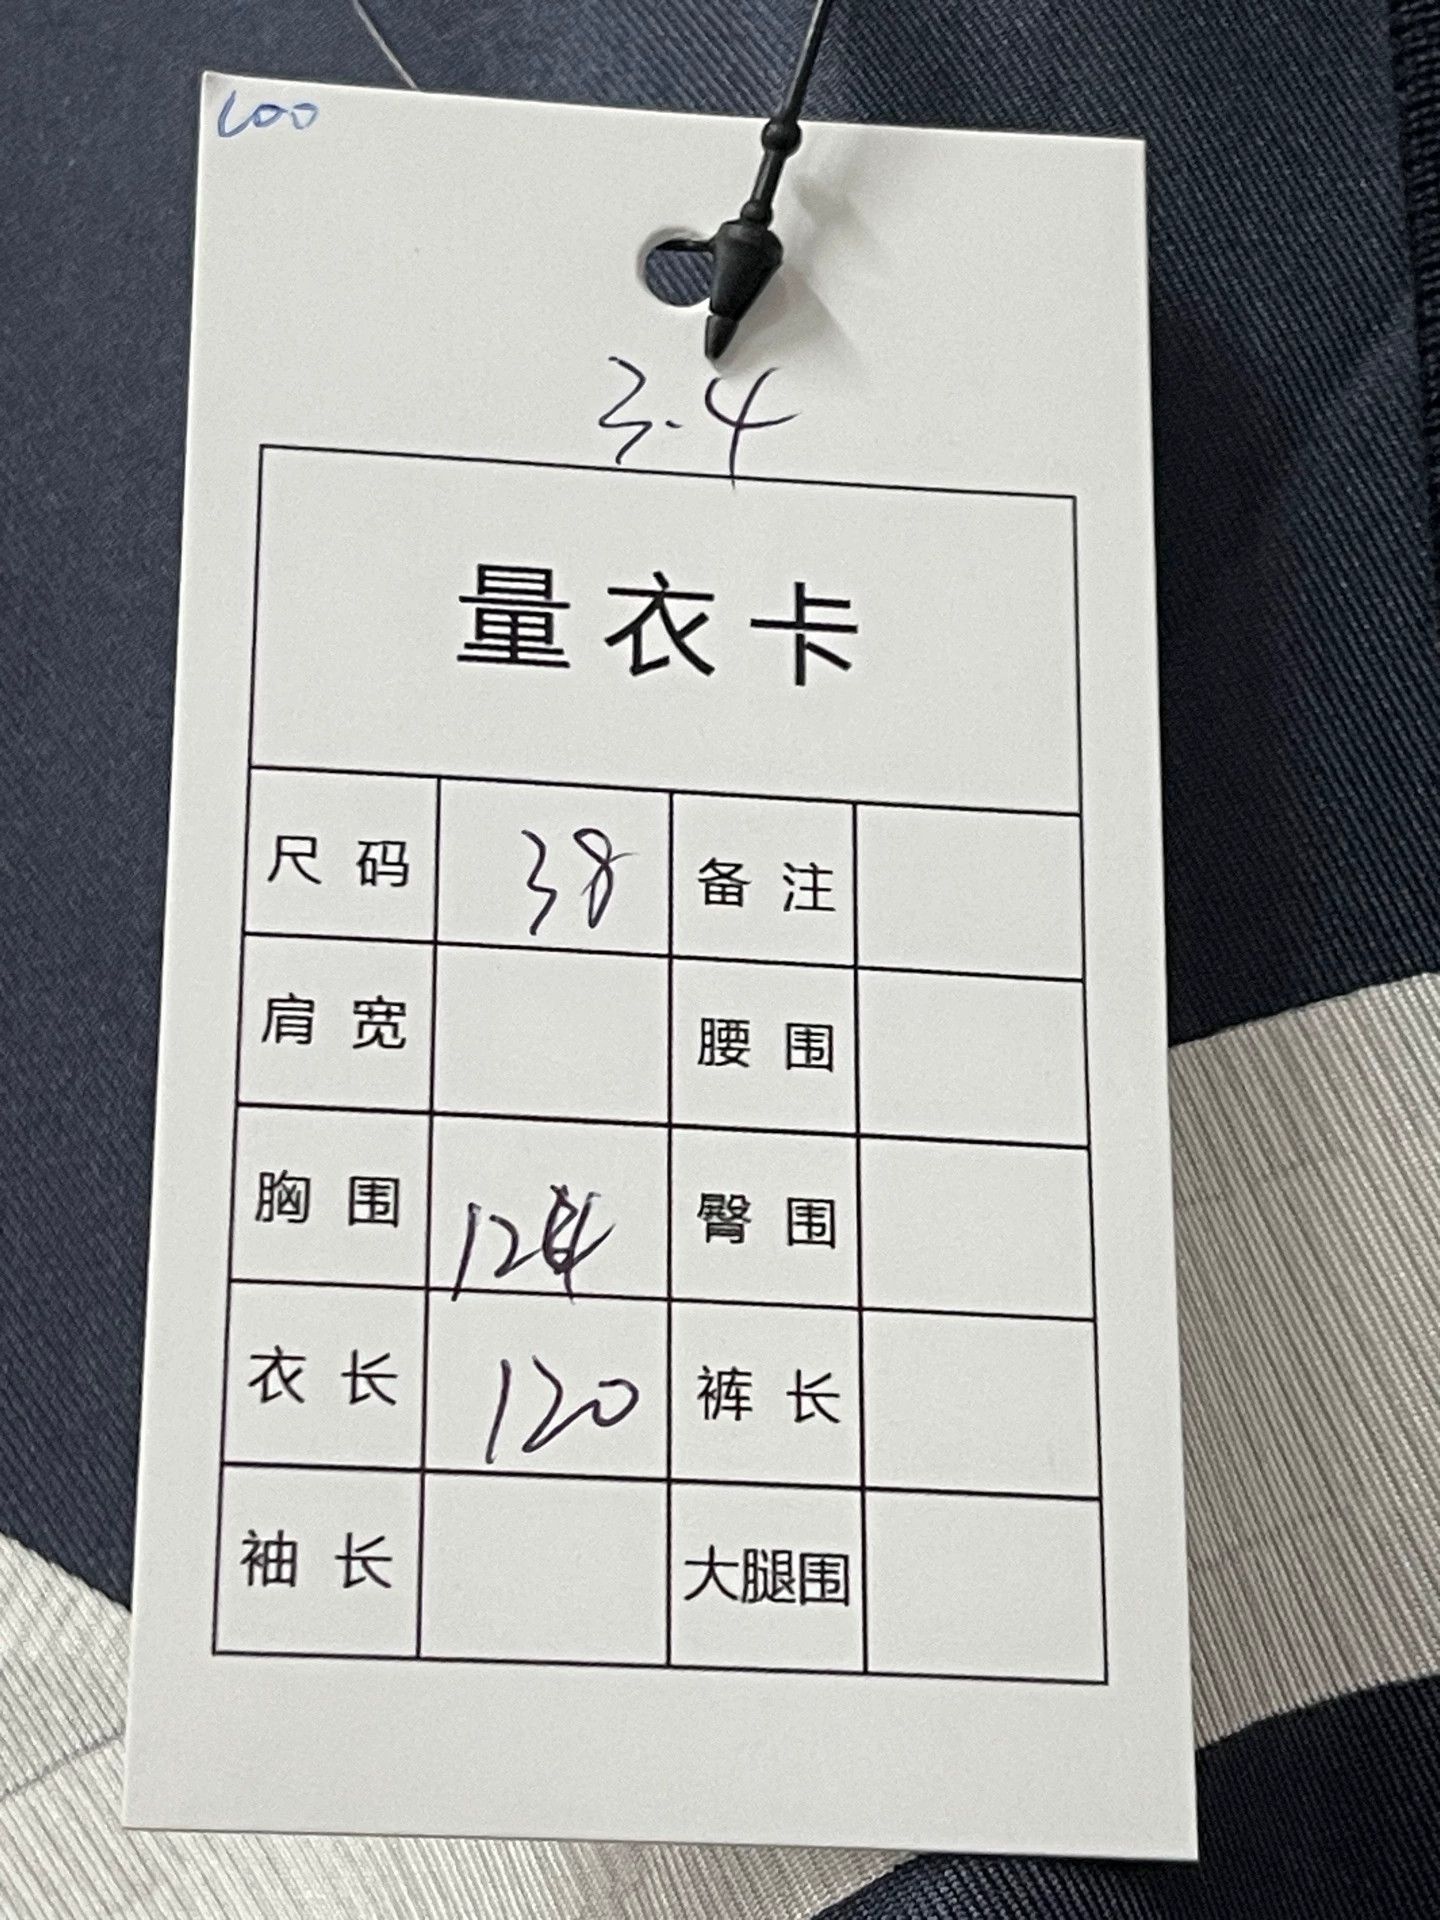 600
3.4
量衣卡
尺码 38 备注
肩宽 腰围
胸围 124 臀围
衣长 120 裤长
袖长 大腿围